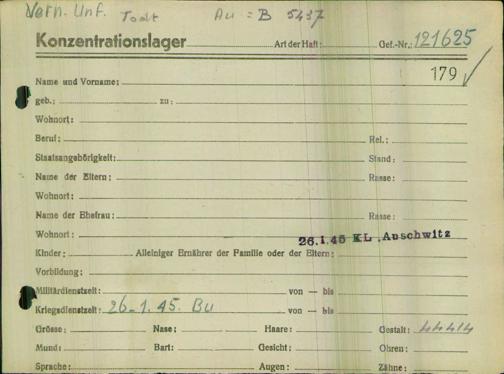 Vern. Unf. Todt Au = B 5437
Konzentrationslager Art der Haft: Gef.-Nr.: 121625
179
Name und Vorname:
geb.: zu:
Wohnort:
Beruf: Rel.:
Staatsangehörigkeit: Stand:
Name der Eltern: Rasse:
Wohnort:
Name der Ehefrau: Rasse:
Wohnort: 26.1.45 KL. Auschwitz
Kinder: Alleiniger Ernährer der Familie oder der Eltern:
Vorbildung:
Militärdienstzeit: von — bis
Kriegsdienstzeit: 26.1.45. Bu von — bis
Grösse: Nase: Haare: Gestalt:
Mund: Bart: Gesicht: Ohren:
Sprache: Augen: Zähne: